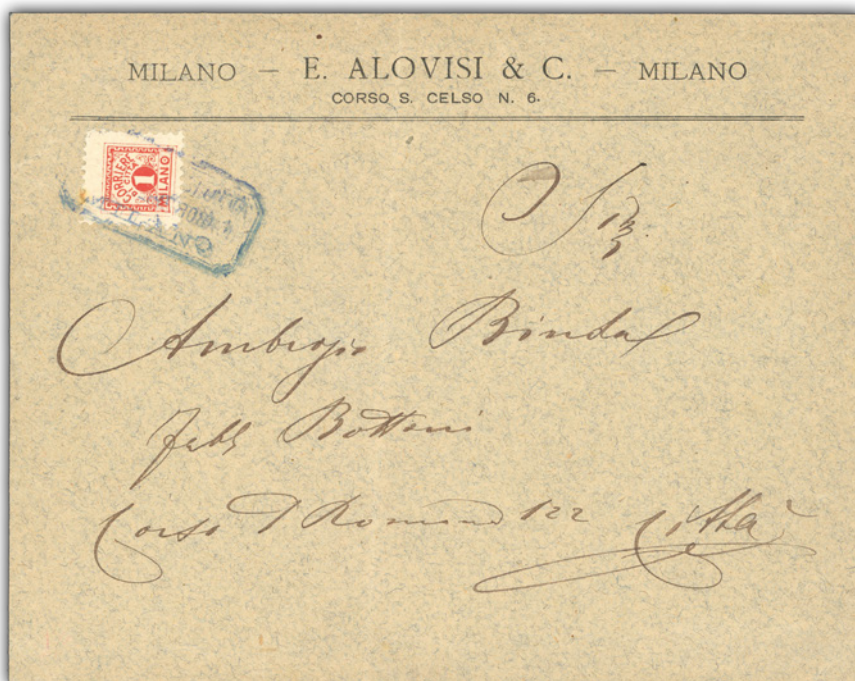 MILANO — E. ALOVISI & C. — MILANO
CORSO S. CELSO N. 6.
CORRIERE
DI CITTÀ
1
MILANO
MILANO
Sig.
Ambrogio Binda
Fabb Bottoni
Corso P Romana 122 Città